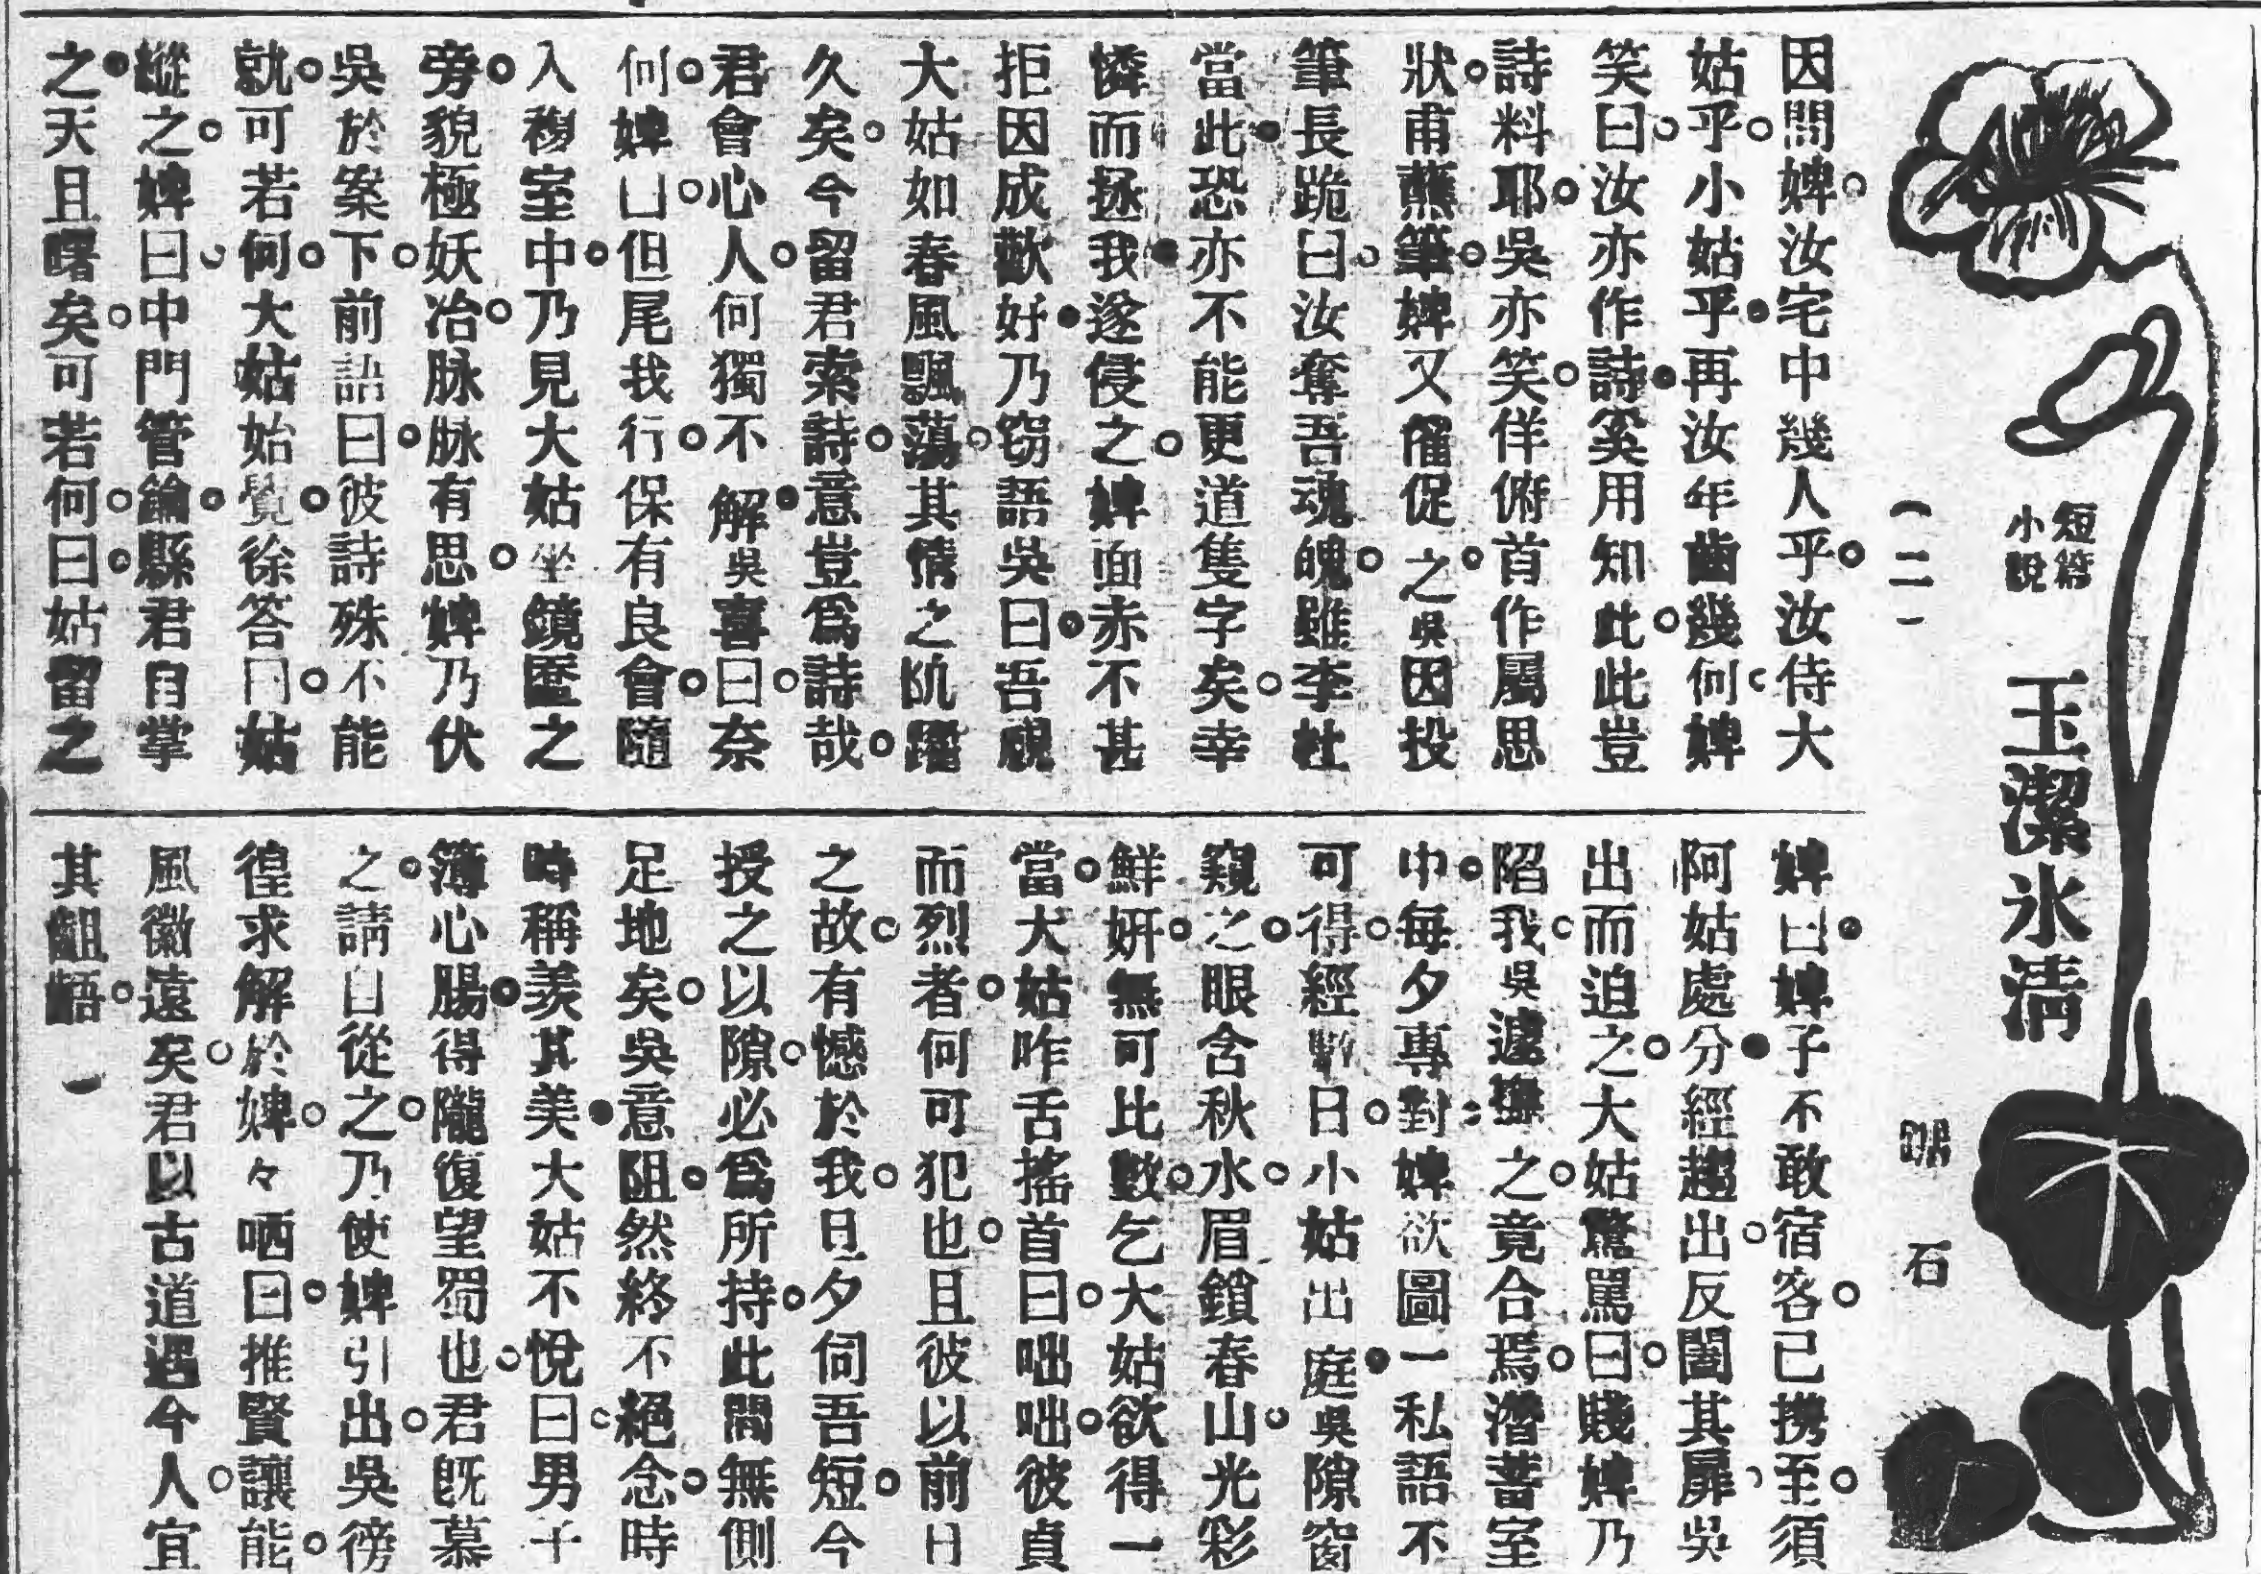 短篇
小說
玉潔氷清
(二)
石
因問婢。汝宅中幾人乎。汝侍大
姑乎。小姑乎。再汝年齒幾何。婢
笑曰。汝亦作詩。奚用知此。此豈
詩料耶。吳亦笑。佯俯首作屬思
狀。甫蘸筆。婢又催促之。吳因投
筆長跪曰。汝奪吾魂魄。雖李杜
當此。恐亦不能更道隻字矣。幸
憐而拯我。遂侵之。婢面赤不甚
拒因成歡好。乃窃語吳曰。吾覘
大姑如春風飄蕩。其情之飢躍
久矣。今留君索詩。意豈爲詩哉。
君會心人。何獨不解。吳喜曰。奈
何。婢曰。但尾我行。保有良會。隨
入穆室中。乃見大姑坐鏡匳之
旁。貌極妖冶。脉脉有思。婢乃伏
吳於案下。前語曰。彼詩殊不能
就。可若何。大姑始覺。徐答曰。姑
縱之。婢曰。中門管鑰。縣君自掌
之。天且曙矣。可若何。曰。姑留之
婢曰。婢子不敢宿客。已携至。須
阿姑處分。經趨出。反闔其扉。吳
出而迫之。大姑驚罵曰。賤婢乃
陷我。吳遽擁之。竟合焉。潛蓄室
中。每夕專對婢欲圖一私語不
可得。經數日。小姑出庭。吳隙窗
窺之。眼含秋水。眉鎖春山。光彩
鮮妍。無可比數。乞大姑欲得一
當。大姑咋舌搖首曰。咄咄。彼貞
而烈者。何可犯也。且彼以前日
之故。有憾於我。旦夕伺吾短。今
授之以隙。必爲所持。此間無側
足地矣。吳意阻。然終不絕念。時
時稱羨其美。大姑不悅曰。男子
薄心腸。得隴復望蜀也。君旣慕
之。請自從之。乃使婢引出。吳徬
徨求解於婢。々哂曰。推賢讓能。
風徽遠矣。君以古道遇今人。宜
其齟齬。